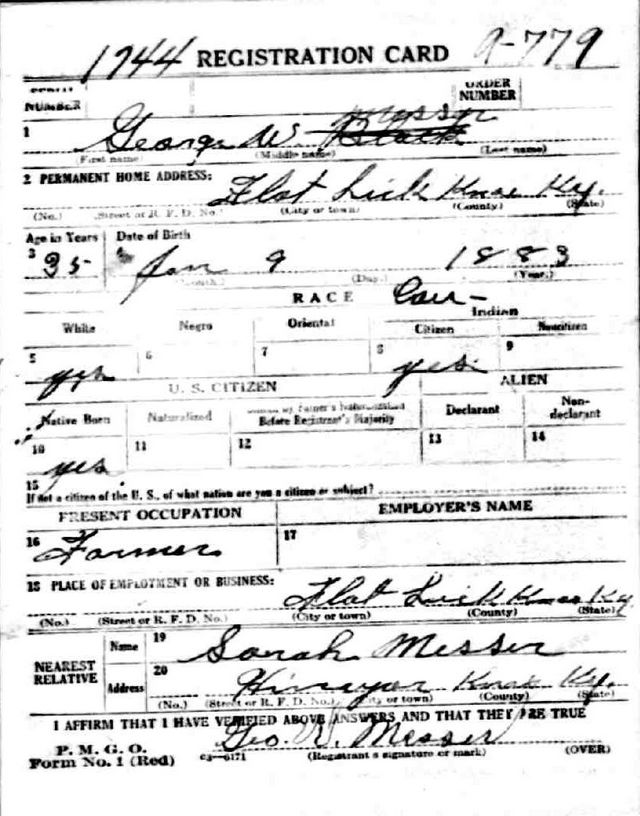 1744 REGISTRATION CARD 9-779
SERIAL NUMBER ORDER NUMBER
Messer
1 George W Black
(First name) (Middle name) (Last name)
2 PERMANENT HOME ADDRESS: Flat Lick Knox Ky.
(No.) (Street or R. F. D. No.) (City or town) (County) (State)
Age in Years Date of Birth
3 35 4 Jan 9 1883
(Month.) (Day.) (Year.)
RACE Cau-
White Negro Oriental Indian
Citizen Noncitizen
5 yes 6 7 8 yes 9
U. S. CITIZEN ALIEN
Native Born Naturalized Citizen by Father's Naturalization Before Registrant's Majority Declarant Non-declarant
10 yes 11 12 13 14
15
If not a citizen of the U. S., of what nation are you a citizen or subject?
PRESENT OCCUPATION EMPLOYER'S NAME
16 Farmer 17
18 PLACE OF EMPLOYMENT OR BUSINESS:
Flat Lick Knox Ky
(No.) (Street or R. F. D. No.) (City or town) (County) (State)
NEAREST RELATIVE Name 19 Sarah Messer
Address 20 Himyar Knox Ky.
(No.) (Street or R. F. D. No.) (City or town) (County) (State)
I AFFIRM THAT I HAVE VERIFIED ABOVE ANSWERS AND THAT THEY ARE TRUE
P. M. G. O.
Form No. 1 (Red) 03-6171 Geo W. Messer
(Registrant's signature or mark) (OVER)